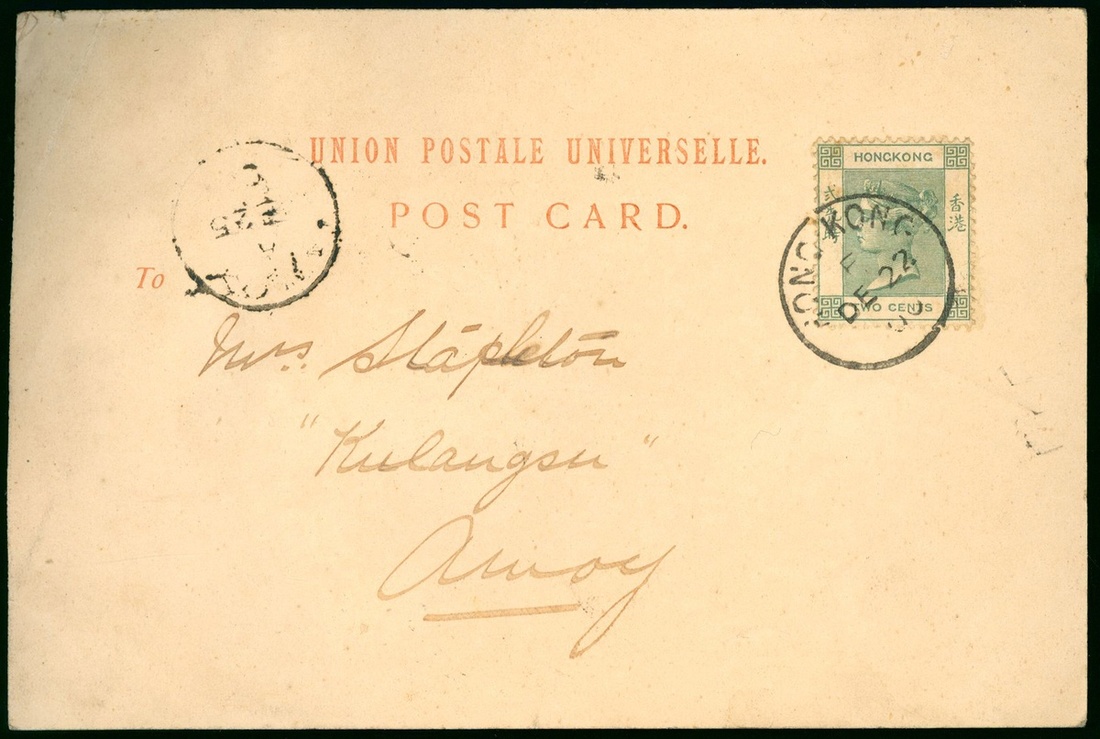 UNION POSTALE UNIVERSELLE.
POST CARD.
To
Mrs. Stapleton
"Kulangsu"
Amoy
HONGKONG
香港
TWO CENTS
HONG KONG
F
DE 22
00
A
25